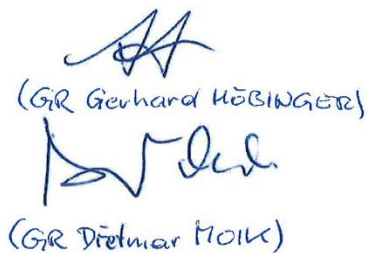 (GR Gerhard HÖBINGER)
(GR Dietmar MOIK)